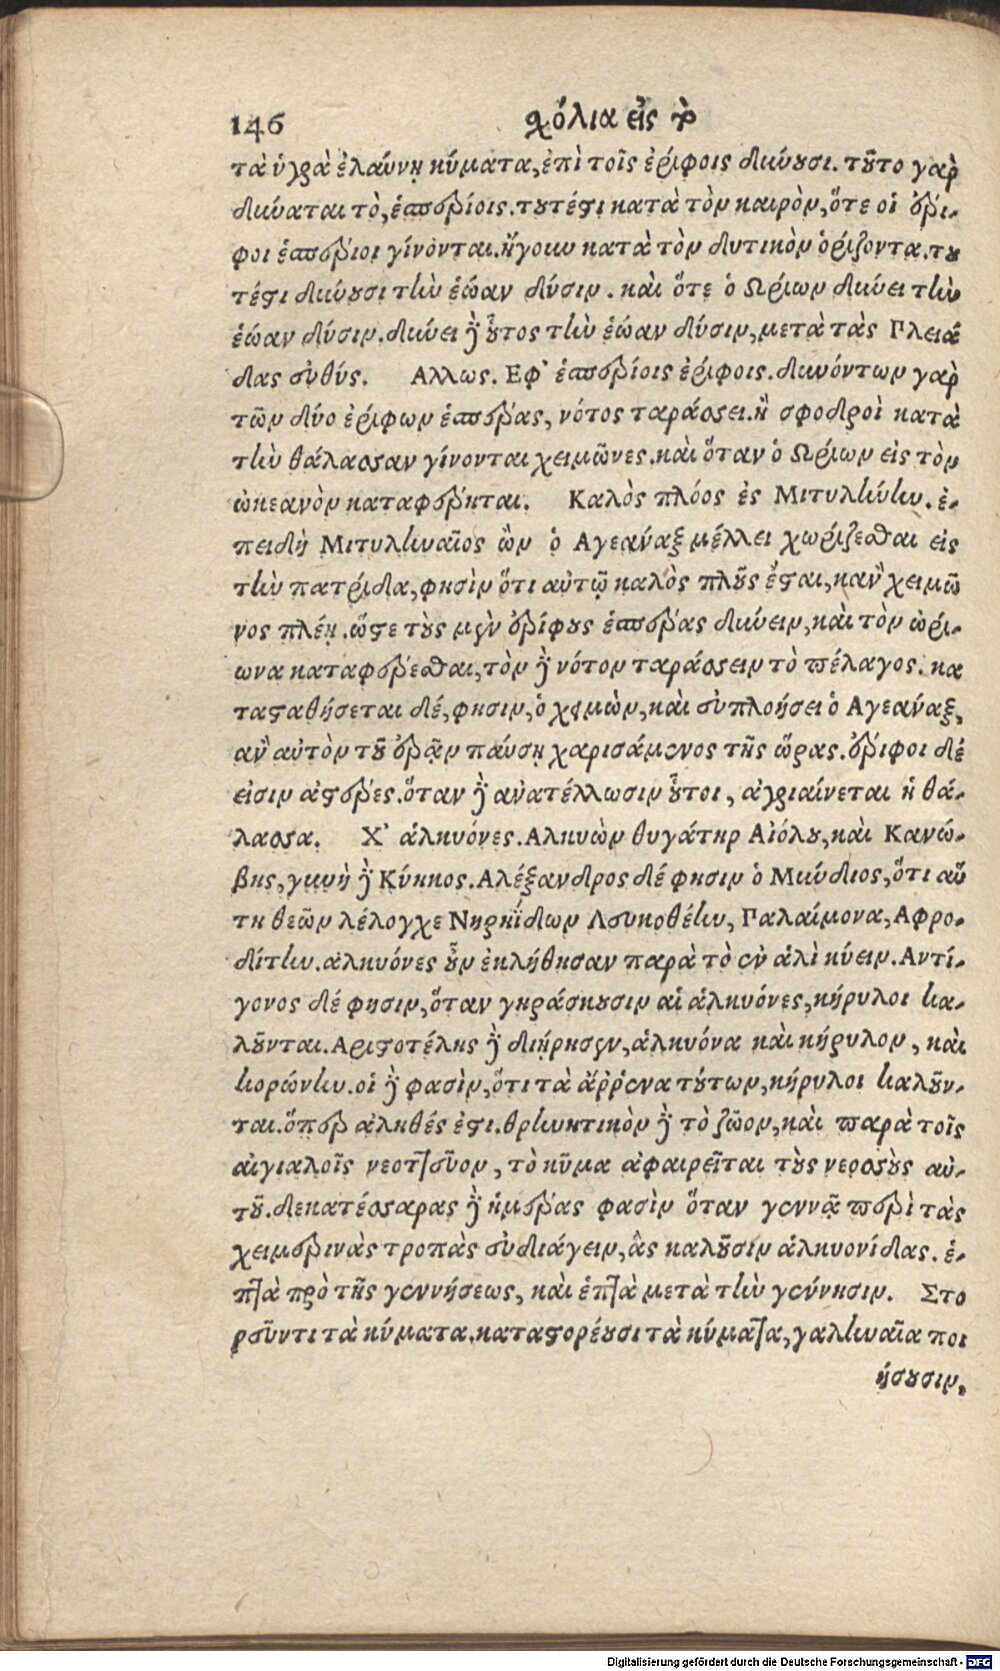 146 σχόλια εἰς τὸ
τὰ ὑγρὰ ἐλαύνῃ κύματα, ἐπὶ τοῖς ἐρίφοις δικύουσι. τοῦτο γὰρ
δικύαται τὸ, ἑσπερίοις. τουτέστι κατὰ τὸν καιρὸν, ὅτε οἱ ἔρι-
φοι ἑσπέριοι γίνονται. ἤγουν κατὰ τὸν δυτικὸν ὁρίζοντα. του
τέστι δικύουσι τὴν ἑῴαν δύσιν. καὶ ὅτε ὁ Ωρίων δικύει τὴν
ἑῴαν δύσιν. δικύει δὲ οὗτος τὴν ἑῴαν δύσιν, μετὰ τὰς Πλειά
δας εὐθύς. Αλλως. Εφ' ἑσπερίοις ἐρίφοις. δυνόντων γὰρ
τῶν δύο ἐρίφων ἑσπέρας, νότος ταράσσει. ἢ σφοδροὶ κατὰ
τὴν θάλασσαν γίνονται χειμῶνες. καὶ ὅταν ὁ Ωρίων εἰς τὸν
ὠκεανὸν καταφέρηται. Καλὸς πλόος ἐς Μιτυλήνην. ἐ-
πειδὴ Μιτυληναῖος ὢν ὁ Αγεάναξ μέλλει χωρίζεσθαι εἰς
τὴν πατρίδα, φησὶν ὅτι αὐτῷ καλὸς πλοῦς ἔσται, κἂν χειμῶ
νος πλέῃ. ὥστε τοὺς μὲν ἐρίφους ἑσπέρας δικύειν, καὶ τὸν ὠρί-
ωνα καταφέρεσθαι, τὸν δὲ νότον ταράσσειν τὸ πέλαγος. κα
τασταθήσεται δέ, φησιν, ὁ χειμὼν, καὶ εὐπλοήσει ὁ Αγεάναξ,
ἂν αὐτὸν τοῦ ἐρᾷν παύσῃ χαρισάμενος τῆς ὥρας. ἔριφοι δέ
εἰσιν ἀστέρες. ὅταν δὲ ἀνατέλλωσιν οὗτοι, ἀγριαίνεται ἡ θά-
λασσα. Χ' ἁλκυόνες. Αλκυὼν θυγάτηρ Αἰόλου, καὶ Κανώ-
βης, γυνὴ δὲ Κύηκος. Αλέξανδρος δέ φησιν ὁ Μιύδιος, ὅτι αὕ
τη θεῶν λέλογχε Νηρηΐδων Λευκοθέην, Παλαίμονα, Αφρο-
δίτην. ἁλκυόνες οὖν ἐκλήθησαν παρὰ τὸ ἐν ἁλὶ κύειν. Αντί-
γονος δέ φησιν, ὅταν γηράσκουσιν αἱ ἁλκυόνες, κήρυλοι κα-
λοῦνται. Αριστοτέλης δὲ διῄρησεν, ἁλκυόνα καὶ κήρυλον, καὶ
κορώνην. οἱ δὲ φασὶν, ὅτι τὰ ἄῤῥενα τούτων, κήρυλοι καλοῦν-
ται. ὅπερ ἀληθές ἐστι. θρηνητικὸν δὲ τὸ ζῷον, καὶ παρὰ τοῖς
αἰγιαλοῖς νεοττεῦον, τὸ κῦμα ἀφαιρεῖται τοὺς νεοσσοὺς αὐ-
τοῦ. δεκατέσσαρας δὲ ἡμέρας φασὶν ὅταν γεννᾷ περὶ τὰς
χειμερινὰς τροπὰς εὐδιάγειν, ἃς καλοῦσιν ἁλκυονίδας. ἑ-
πτὰ πρὸ τῆς γεννήσεως, καὶ ἑπτὰ μετὰ τὴν γέννησιν. Στο
ρεῦντι τὰ κύματα. καταστορέουσι τὰ κύματα, γαληναῖα ποι
ήσουσιν,
Digitalisierung gefördert durch die Deutsche Forschungsgemeinschaft - DFG